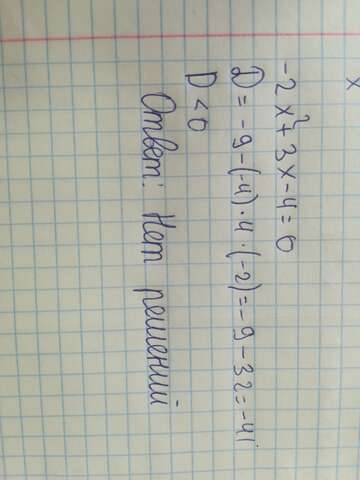 x
-2x²+3x-4=0
D = -9-(-4)·4·(-2)=-9-32=-41
D<0
Ответ: Нет решений